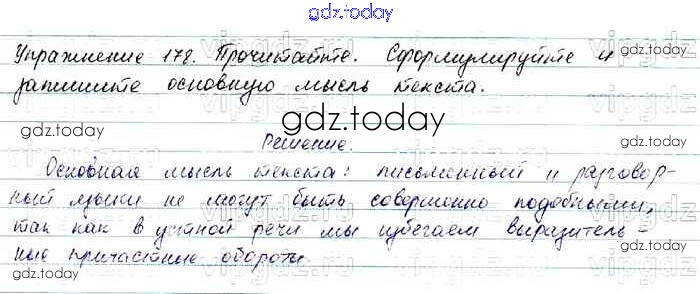 gdz.today
Упражнение 178. Прочитайте. Сформулируйте и
запишите основную мысль текста.
gdz.today
Решение.
Основная мысль текста: письменный и разговор-
ный языки не могут быть совершенно подобными,
так как в устной речи мы избегаем выразитель-
ные причастные обороты.
gdz.today
gdz.today
gdz.today
gdz.today
gdz.today